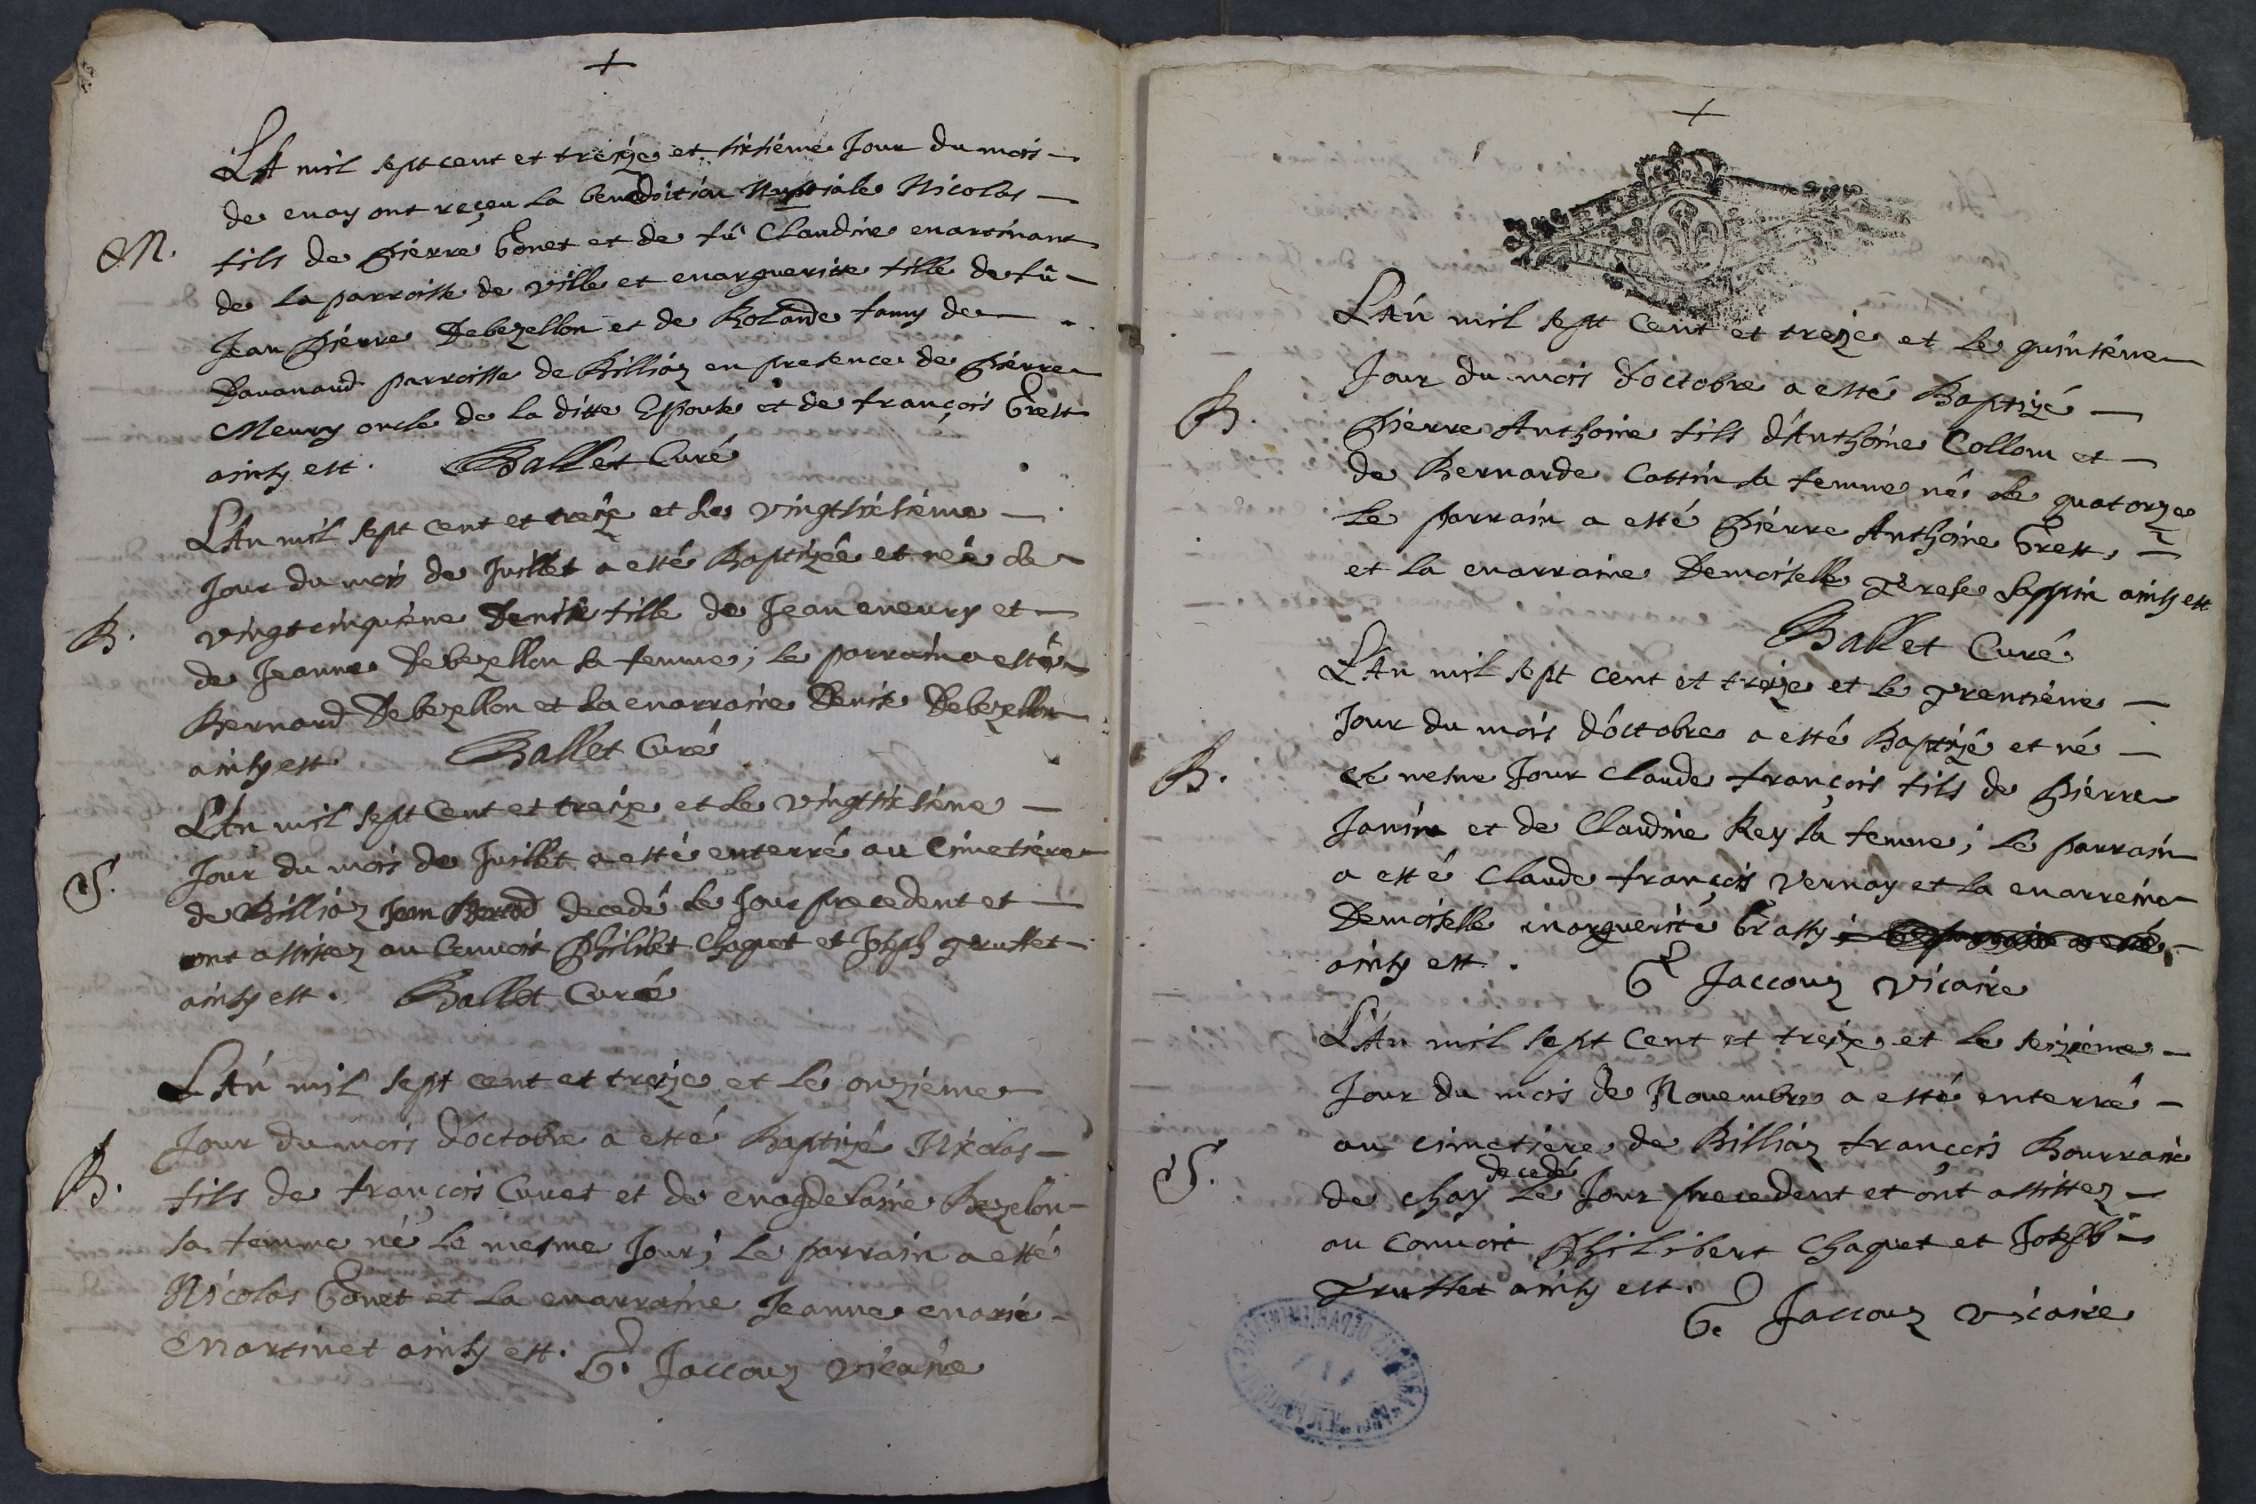 +
LAn mil sept cent et treize et sixsiéme Jour du mois
M. de may ont reçeu la benediction Nuptiale Nicolas
fils de Pierre Gonet et de fû Claudine martinant
de la parroisse de ville et marguerite fille de fû
Jean Pierre Debezellon et de Rolande famy de
Davanaud parroisse de Billiaz en presence de Pierre
Meury oncle de la ditte Espouse et de françois Grest
ainsy est. Ballet Curé
LAn mil sept cent et treize et le vingtsixsiéme
Jour du mois de Juillet a esté Baptizée et née le
B. vingtcinquiéme Denise fille de Jean meury et
de Jeanne Debezellon sa femme; le parrain a esté
Bernard Debezellon et la marraine Denise Debezellon
ainsy est Ballet Curé
LAn mil sept Cent et treize et le vingtsixsiéme
Jour du mois de Juillet a esté enterré au Cimetiére
S. de Billiaz Jean decedé le Jour precedent et
ont assistez au Convoit Philibet Chaguet et Joseph truffet
ainsy est. Ballet Curé
LAn mil sept cent et treize et le onziéme
Jour du mois d'octobre a esté Baptizé Nicolas
B. fils de françois Cuuet et de magdelaine Bezelon
sa femme né le mesme Jour; le parrain a esté
Nicolas Gonet et la marraine Jeanne marie
Martinet ainsy est. G. Jaccouz vicaire
+
LAn mil sept Cent et treize et le quinsiéme
Jour du mois d'octobre a esté Baptizé
B. Pierre Anthoine fils d'Anthoine Collom et
de Bernarde Cattin sa femme né le quatorze
le parrain a esté Pierre Anthoine Grest,
et la marraine Demoiselle Terese Sappin ainsy est
Ballet Curé
LAn mil sept cent et treize et le trentiéme
Jour du mois d'octobre a esté Baptizé et né
B. le mesme Jour Claude françois fils de Pierre
Janin et de Claudine Rey sa femme; le parrain
a esté Claude françois Vernay et la marreine
Demoiselle marguerite Grassy
ainsy est. G. Jaccouz vicaire
LAn mil sept Cent et treize et le seiziéme
Jour du mois de Novembre a esté enterré
au cimetiere de Billiaz françois Bourrain
S. de Chay decedé le Jour precedent et ont assistez
au Convoit Philibert Chaguet et Joseph
Truffet ainsy est.
G. Jaccouz vicaire